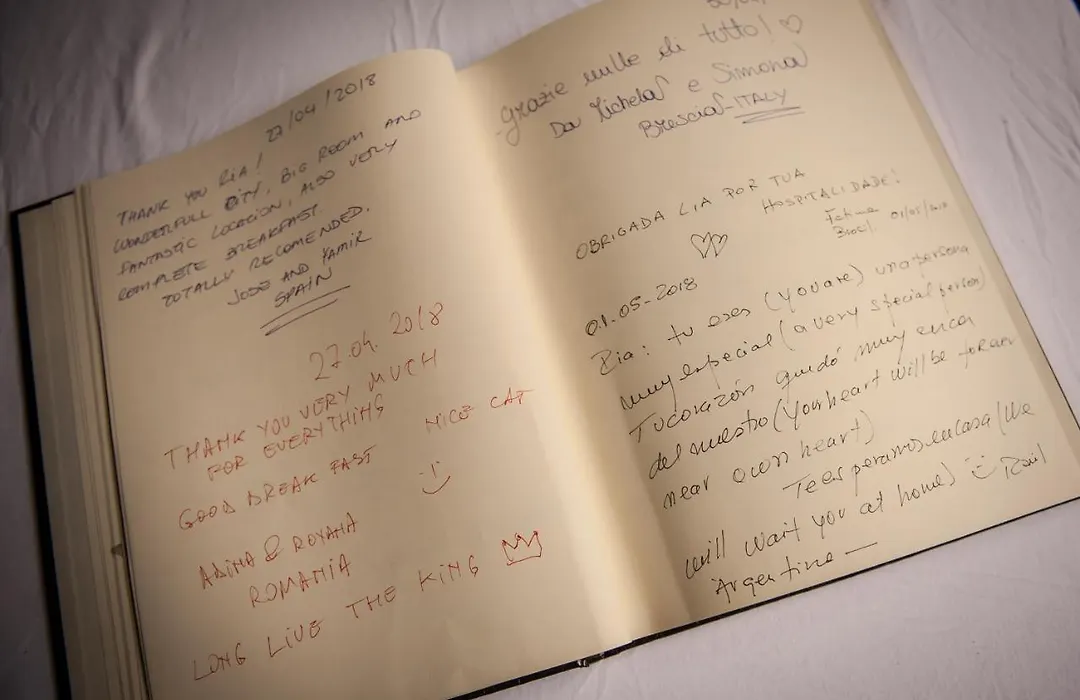 27/04/2018
THANK YOU RIA!
WONDERFULL CITY, BIG ROOM AND
FANTASTIC LOCACION, ALSO VERY
COMPLETE BREAKFAST
TOTALLY RECOMENDED.
JOSE AND YAMIR
SPAIN
27.04.2018
THANK YOU VERY MUCH
FOR EVERYTHING
NICE CAT
GOOD BREAK FAST
ADINA & ROXANA
ROMANIA
LONG LIVE THE KING
Grazie mille di tutto!
Da Michela e Simona
Brescia-ITALY
OBRIGADA LIA POR TUA
HOSPITALIDADE!
Fatima
Brasil 01/05/2018
01-05-2018
Ria: tu eres (you are) una persona
muy especial (a very special person)
Tu corazón quedó muy cerca
del nuestro (your heart will be foran
near own heart)
Te esperamos en casa (We
will wait you at home) Raúl
Argentina